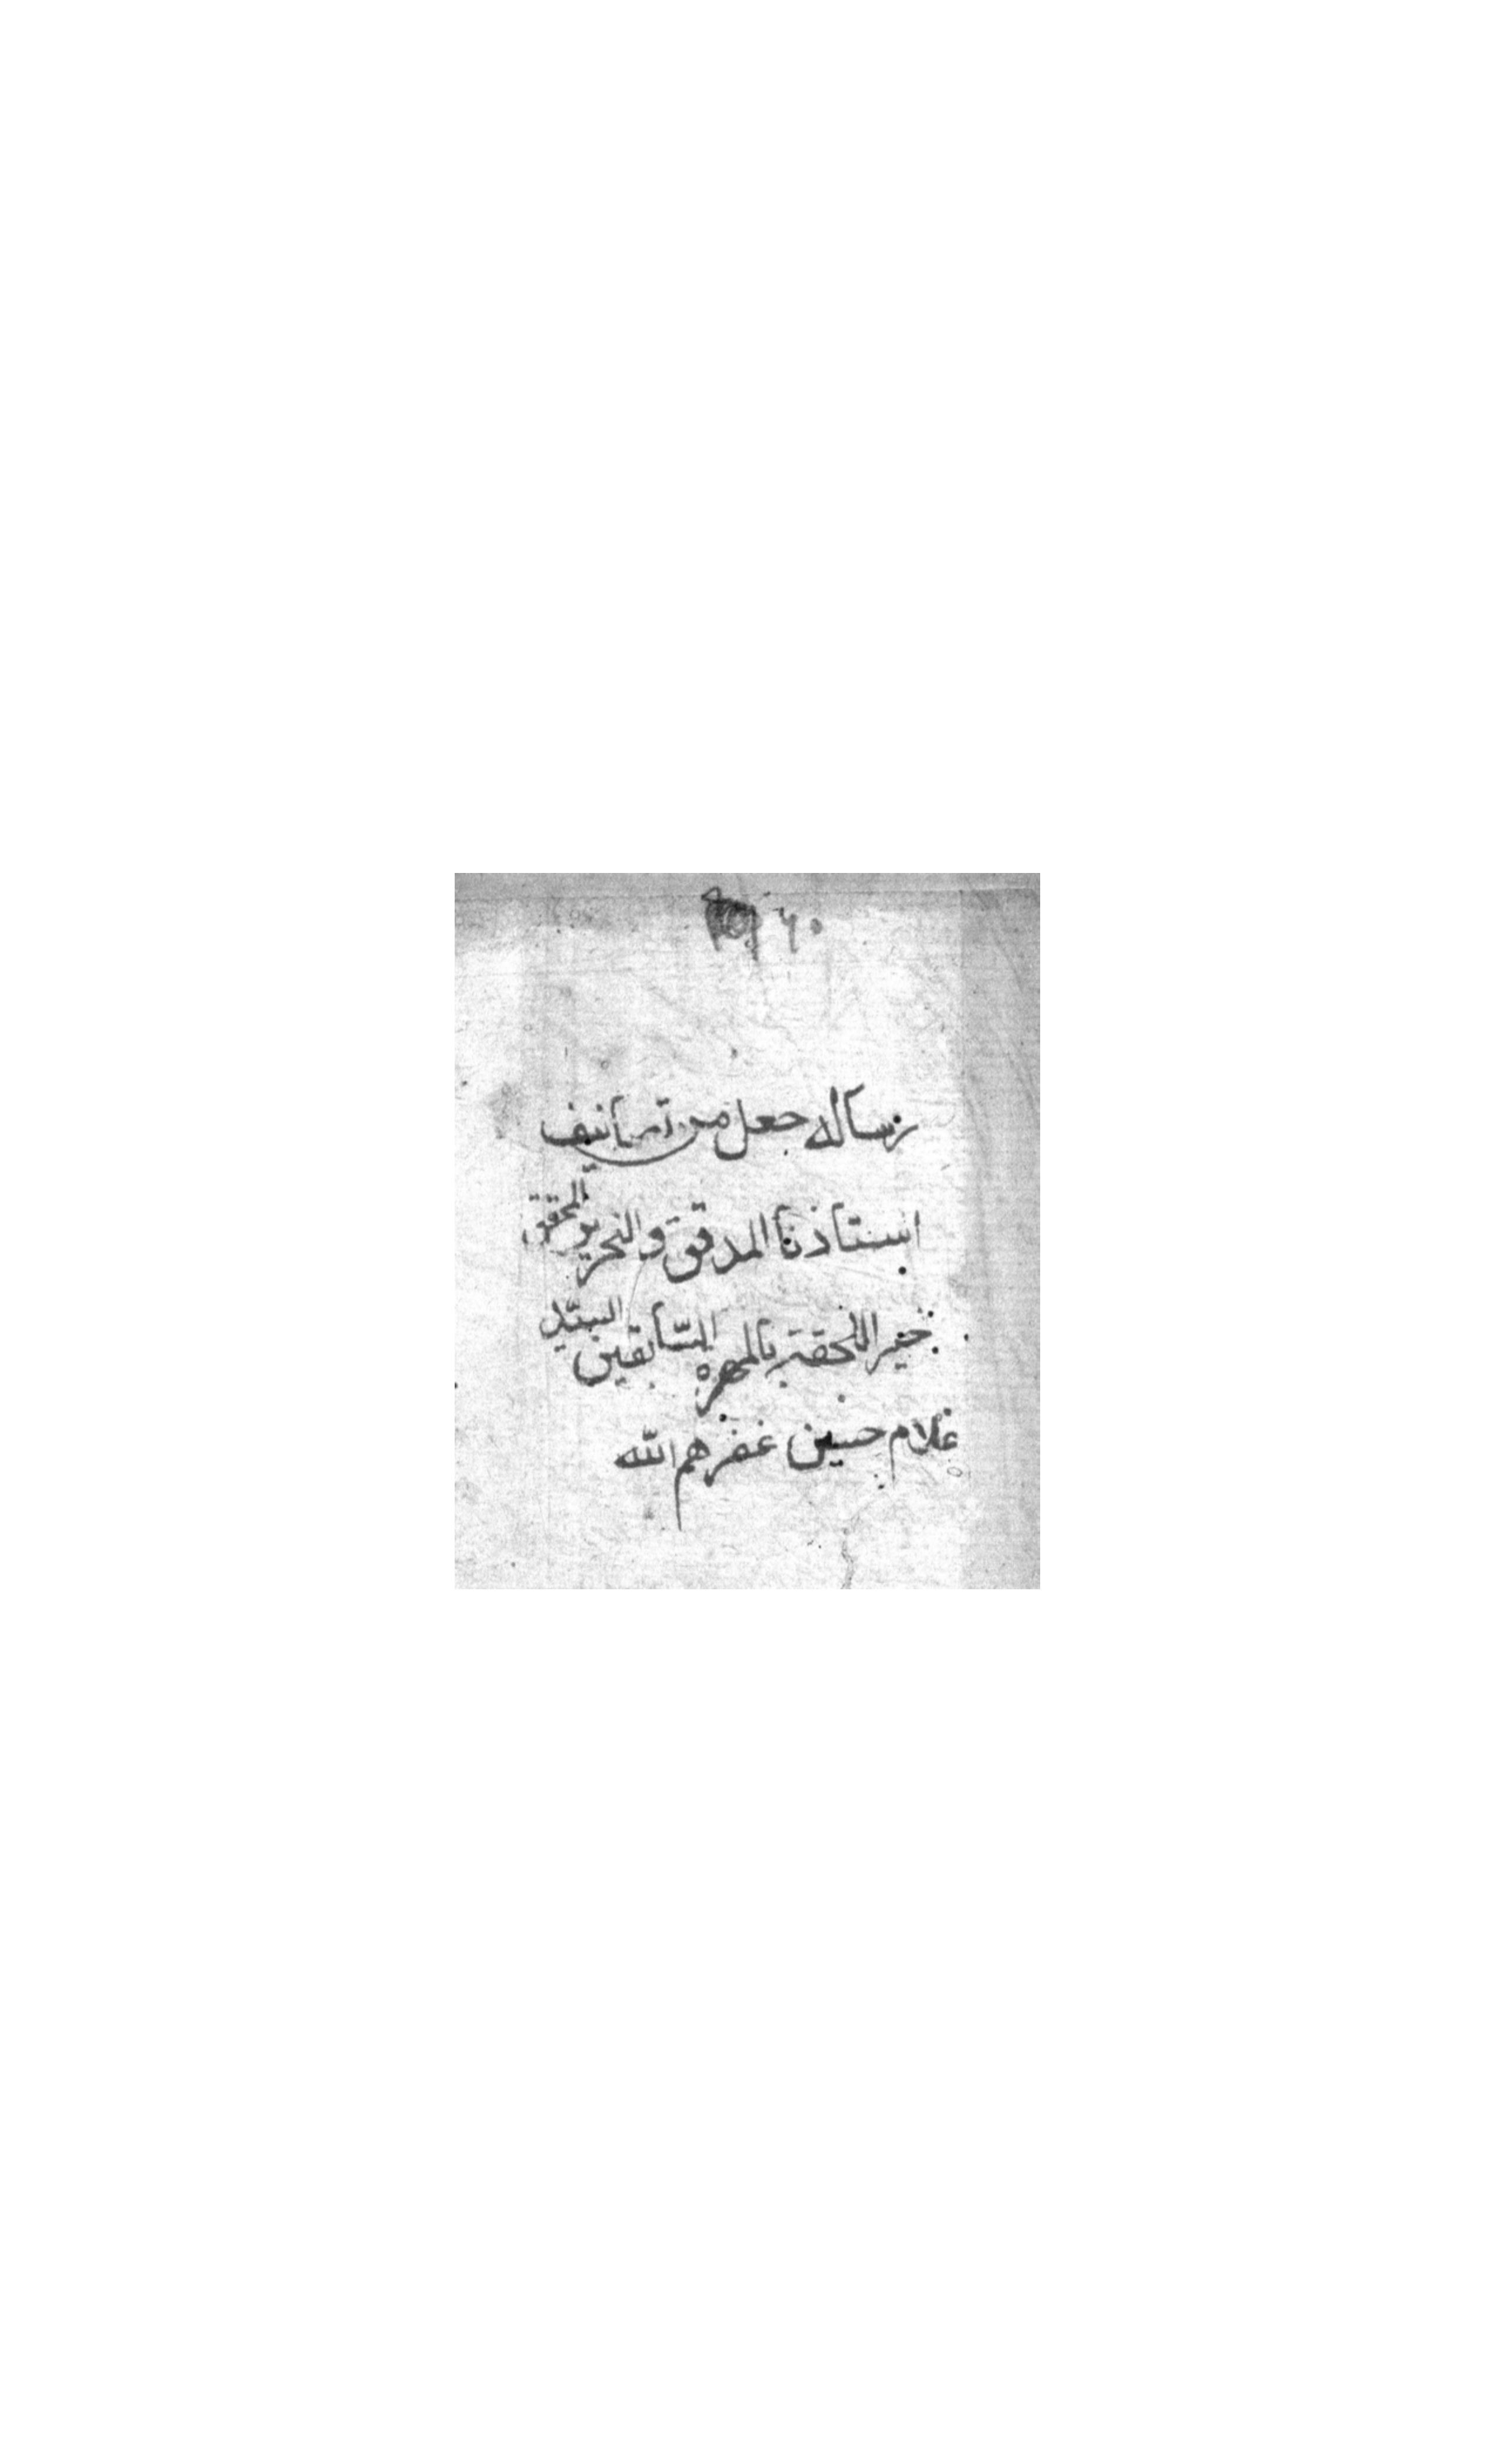 رساله جعل من تصانيف
استاذنا المدقق والنحرير المحقق
خير اللاحقة بالمهره السّابقين السيّد
غلام حسين غفرهم اللّه